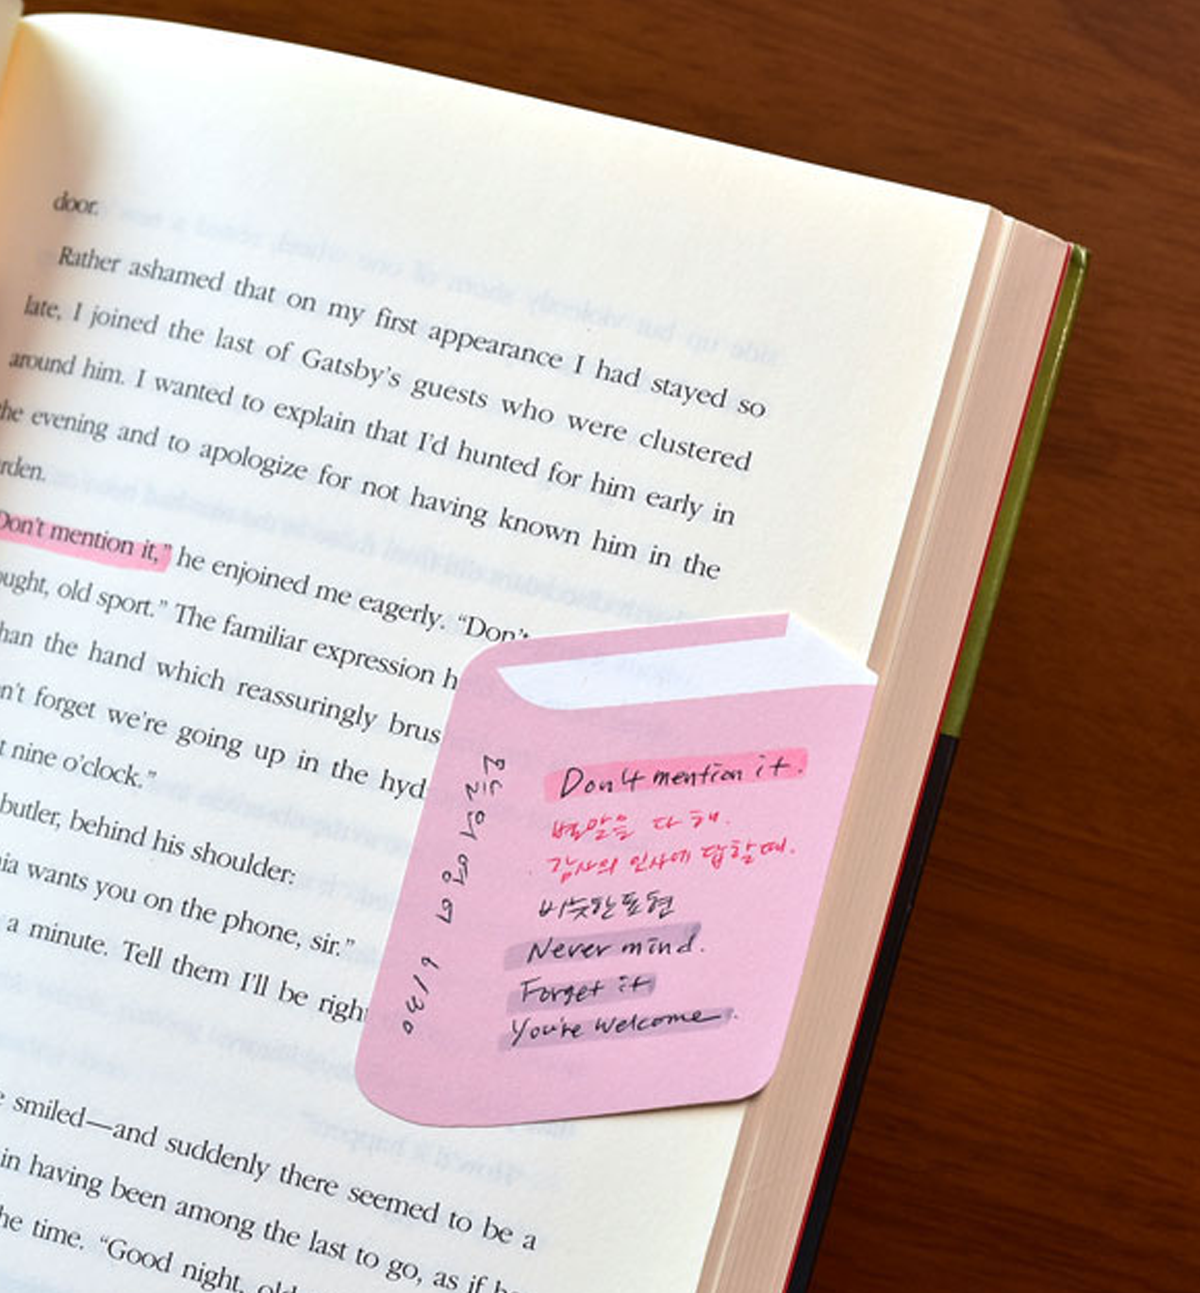 door.
Rather ashamed that on my first appearance I had stayed so
late, I joined the last of Gatsby's guests who were clustered
around him. I wanted to explain that I'd hunted for him early in
the evening and to apologize for not having known him in the
rden.
Don't mention it,” he enjoined me eagerly. “Don't
ught, old sport.” The familiar expression h
han the hand which reassuringly brus
n't forget we're going up in the hyd
t nine o'clock.”
butler, behind his shoulder:
ia wants you on the phone, sir.”
a minute. Tell them I'll be righ
smiled—and suddenly there seemed to be a
in having been among the last to go, as if
he time. “Good night, old
오늘의영어 6/30
Don't mention it.
별말을 다 해.
감사의 인사에 답할때.
비슷한표현
Never mind.
Forget it
You're welcome.